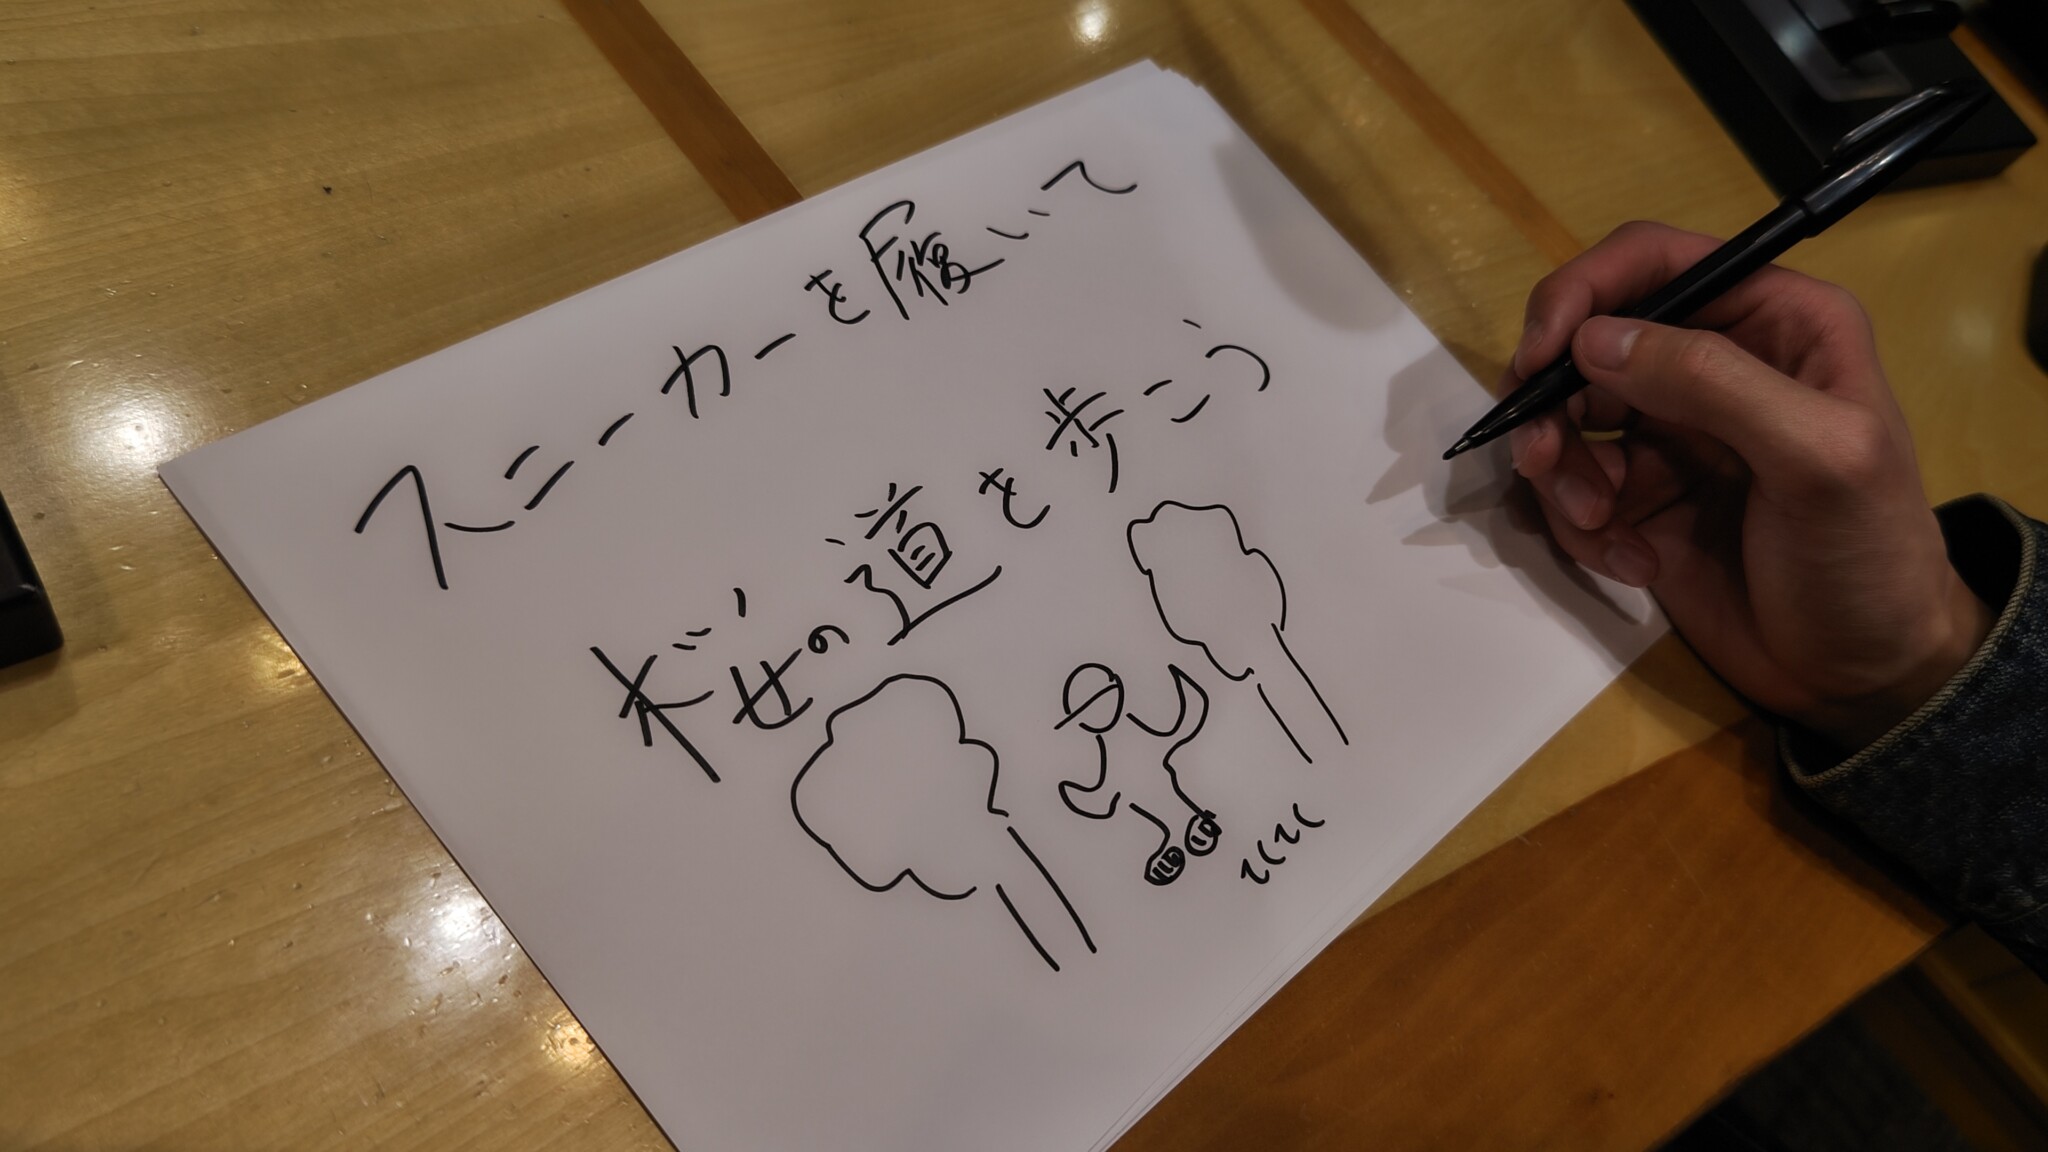 スニーカーを履いて
桜の道を歩こう